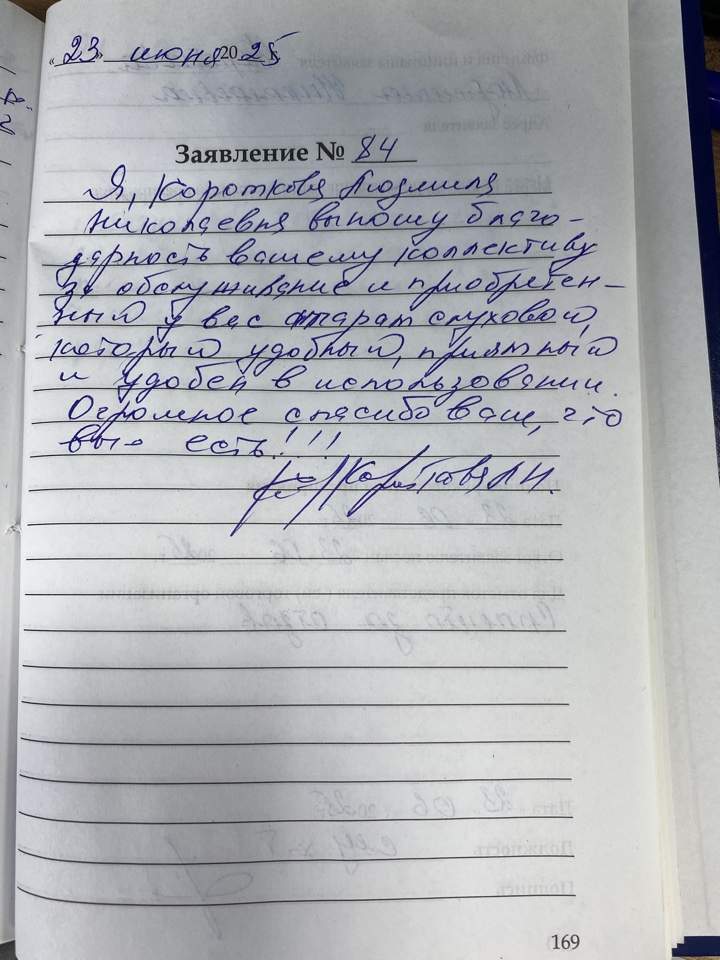 «23» июня 2025
Заявление № 84
Я, Короткова Людмила
Николаевна выношу благо-
дарность вашему коллективу
за обслуживание и приобретен-
ный у вас аппарат слуховой,
который удобный, приятный
и удобен в использовании.
Огромное спасибо вам, что
вы есть!!!
Короткова Л.Н.
169